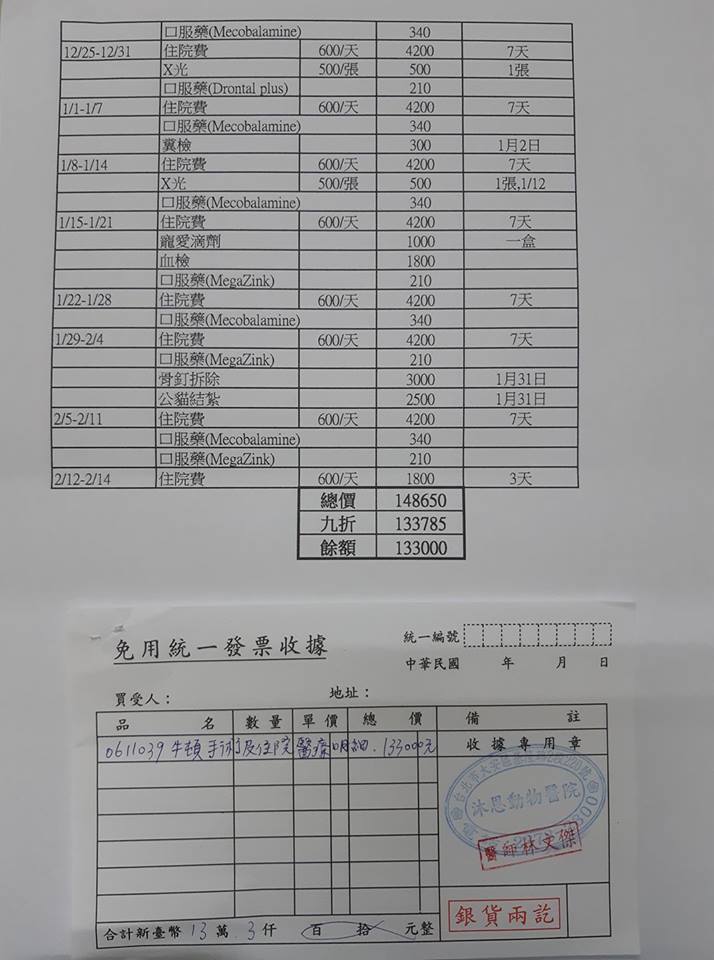 口服藥(Mecobalamine) 340
12/25-12/31 住院費 600/天 4200 7天
X光 500/張 500 1張
口服藥(Drontal plus) 210
1/1-1/7 住院費 600/天 4200 7天
口服藥(Mecobalamine) 340
糞檢 300 1月2日
1/8-1/14 住院費 600/天 4200 7天
X光 500/張 500 1張,1/12
口服藥(Mecobalamine) 340
1/15-1/21 住院費 600/天 4200 7天
寵愛滴劑 1000 一盒
血檢 1800
口服藥(MegaZink) 210
1/22-1/28 住院費 600/天 4200 7天
口服藥(Mecobalamine) 340
1/29-2/4 住院費 600/天 4200 7天
口服藥(MegaZink) 210
骨釘拆除 3000 1月31日
公貓結紮 2500 1月31日
2/5-2/11 住院費 600/天 4200 7天
口服藥(Mecobalamine) 340
口服藥(MegaZink) 210
2/12-2/14 住院費 600/天 1800 3天
總價 148650
九折 133785
餘額 133000
免用統一發票收據
統一編號
中華民國 年 月 日
買受人： 地址：
品名 數量 單價 總價 備註
0611039 牛頓 手術及住院 醫療明細. 133000元
收據專用章
沐恩動物醫院
醫師林文傑
銀貨兩訖
合計新臺幣 13 萬 3 仟 百 拾 元整